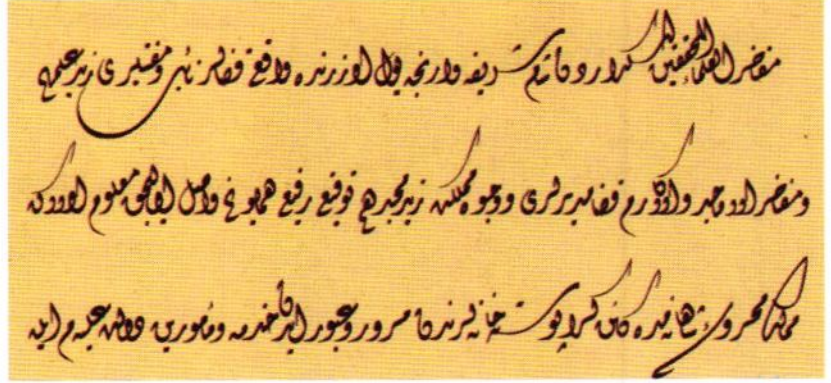 مفاخر العلماء المحققين اسكداردن شام شريفه وارنجه يول اوزرنده واقع قضالر نائبى و مفتيلرى زيد علمهم
ومفاخر الاماجد والاكارم قضا مديرلرى ووجوه مملكت زيد مجدهم توقيع رفيع همايونم واصل اوليجق معلوم اولاكه
ممالك محروسه شاهانه مده كائن پوسته خانه لرندن مرور وعبور ايدن خدمه ومأمورين دولت عليه م ايله